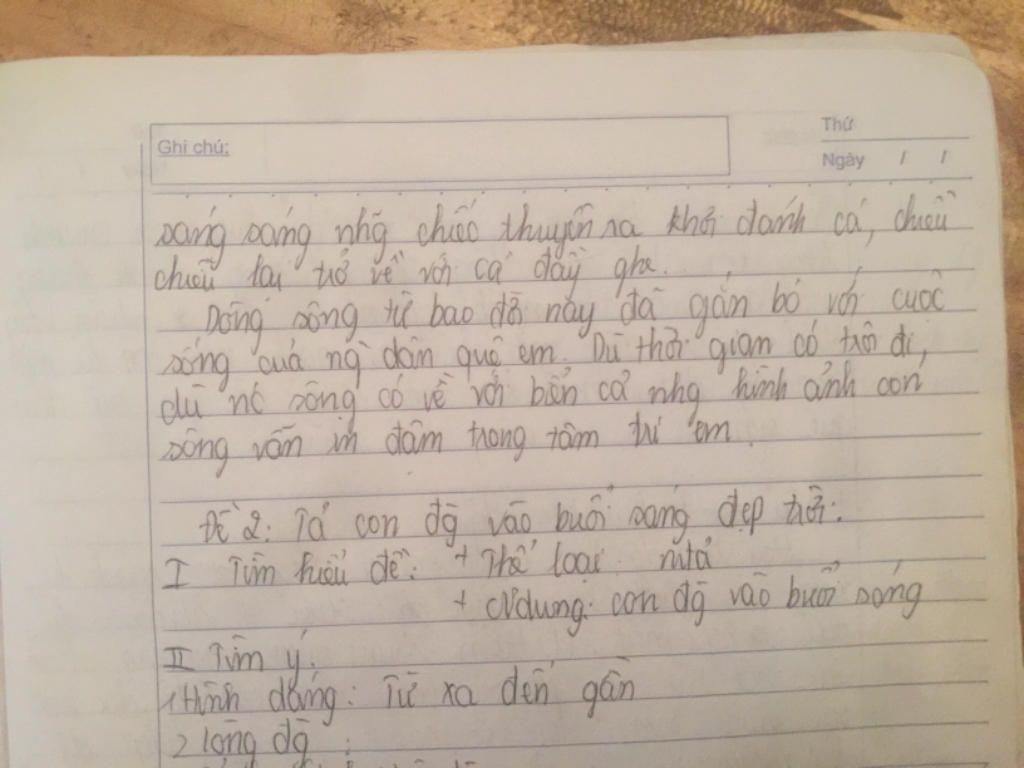 Ghi chú:
Thứ
Ngày / /
sáng sáng nhg̃ chiếc thuyền ra khơi đánh cá, chiều
chiều lại trở về với cá đầy ghe.
Dòng sông từ bao đời nay đã gắn bó với cuộc
sống của ng̀ dân quê em. Dù thời gian có trôi đi,
dù nc sông có về với biển cả nhg hình ảnh con
sông vẫn in đậm trong tâm trí em.
Đề 2: Tả con đg̀ vào buổi sáng đẹp trời.
I Tìm hiểu đề: + Thể loại: m.tả
+ Ndung: con đg̀ vào buổi sáng
II Tìm ý.
1 Hình dáng: Từ xa đến gần
2 lòng đg̀ :